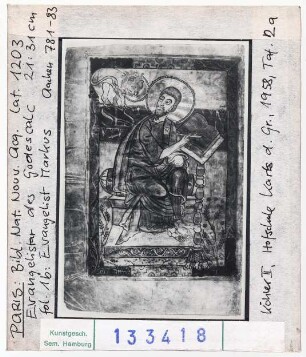 PARIS: Bibl. Nat. Nouv. acq. lat. 1203
Evangelistar des Godescalc 21:31 cm
fol. 1b: Evangelist Markus Aachen 781-83
Köhler II. Hofschule Karls d. Gr., 1958, Taf.
Kunstgesch.
Sem. Hamburg
133418